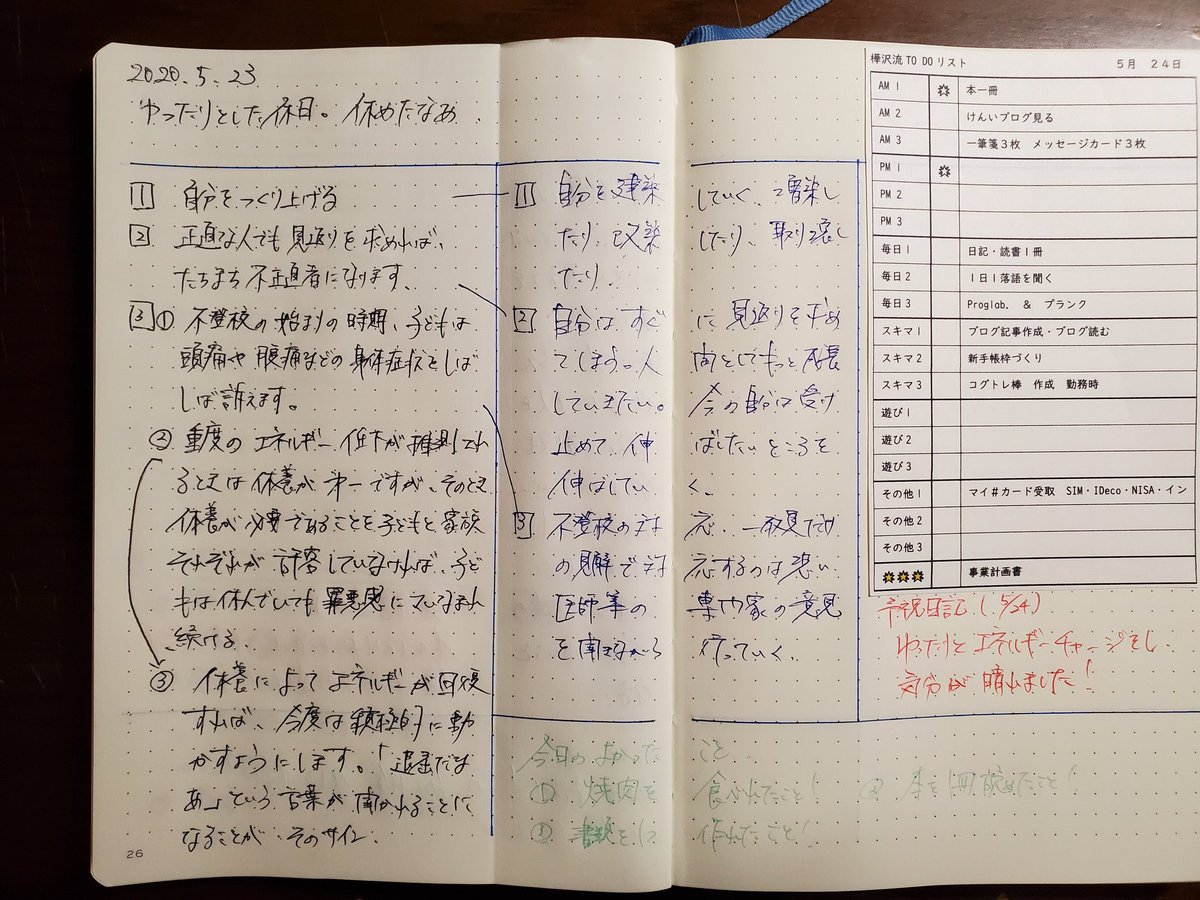 2020.5.23
ゆったりとした休日。休めたなあ
1 自分をつくり上げる
2 正直な人でも見返りを求めれば、
たちまち不正直者になります。
3 ① 不登校の始まりの時期、子どもは
頭痛や腹痛などの身体症状をしば
しば訴えます。
② 重度のエネルギー低下が推測され
るときは休養が第一ですが、そのとき
休養が必要であることを子どもと家族
それぞれが許容していなければ、子ど
もは休んでいても罪悪感に
続ける。
③ 休養によってエネルギーが回復
すれば、今度は積極的に動
かすようにします。「退屈だな
あ」という言葉が聞かれることに
なることがそのサイン。
26
1 自分を建築していく、増築し
たり、改築したり、取り壊し
たり
2 自分はすぐに見返りを求め
てしまう。人間としてもっと成長
していきたい。今の自分は受け
止めて、伸ばしたいところを
伸ばしていく。
3 不登校の対応、一般見だけ
の見解で対応するのは悪い
医師等の専門家の意見
を聞きながら行っていく。
今日のよかったこと
① 焼肉を食べれたこと!
② 書類を 作れたこと!
③ 本を1冊読めたこと!
樺沢流TO DOリスト 5月 24日
AM 1 本一冊
AM 2 けんいブログ見る
AM 3 一筆箋3枚 メッセージカード3枚
PM 1
PM 2
PM 3
毎日1 日記・読書1冊
毎日2 1日1落語を聞く
毎日3 Proglab. & プランク
スキマ1 ブログ記事作成・ブログ読む
スキマ2 新手帳枠づくり
スキマ3 コグトレ棒 作成 勤務時
遊び1
遊び2
遊び3
その他1 マイ#カード受取 SIM・IDeco・NISA・イン
その他2
その他3
事業計画書
予祝日記(5/24)
ゆったりとエネルギーチャージをし
気分が晴れました!